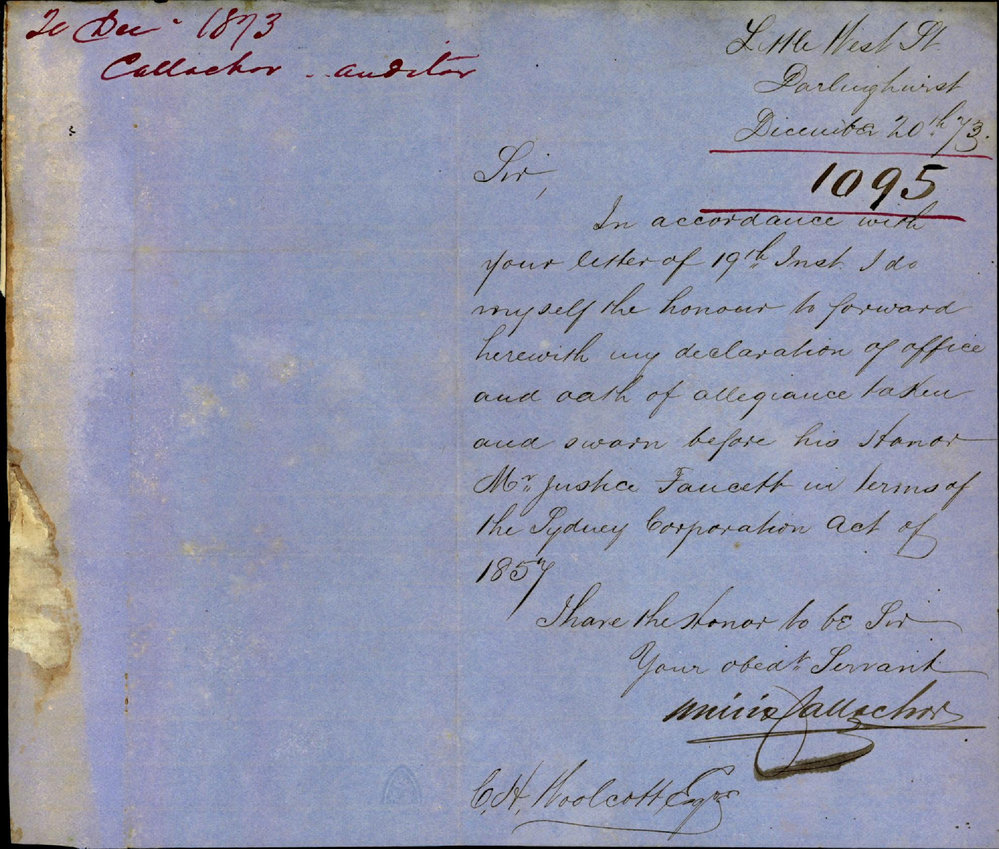 20 Dec 1873
Callachor - auditor
Little West St
Darlinghurst
December 20th 73.
1095
Sir,
In accordance with
your letter of 19th Inst. I do
myself the honour to forward
herewith my declaration of office
and oath of allegiance taken
and sworn before his Honor
Mr. Justice Faucett in terms of
the Sydney Corporation Act of
1857
I have the Honor to be Sir
Your obedt Servant
Callachor
C. H. Woolcott Esqre